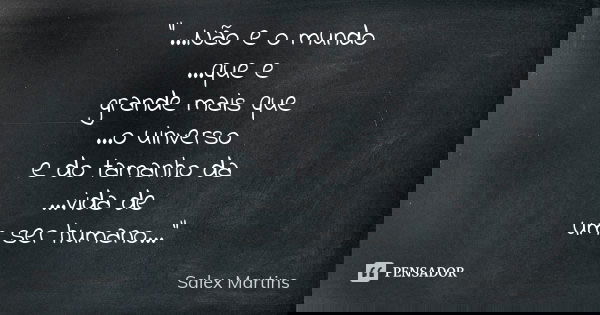 "...Não e o mundo
...que e
grande mais que
...o uinverso
e do tamanho da
....vida de
um ser humano..."
Salex Martins
PENSADOR